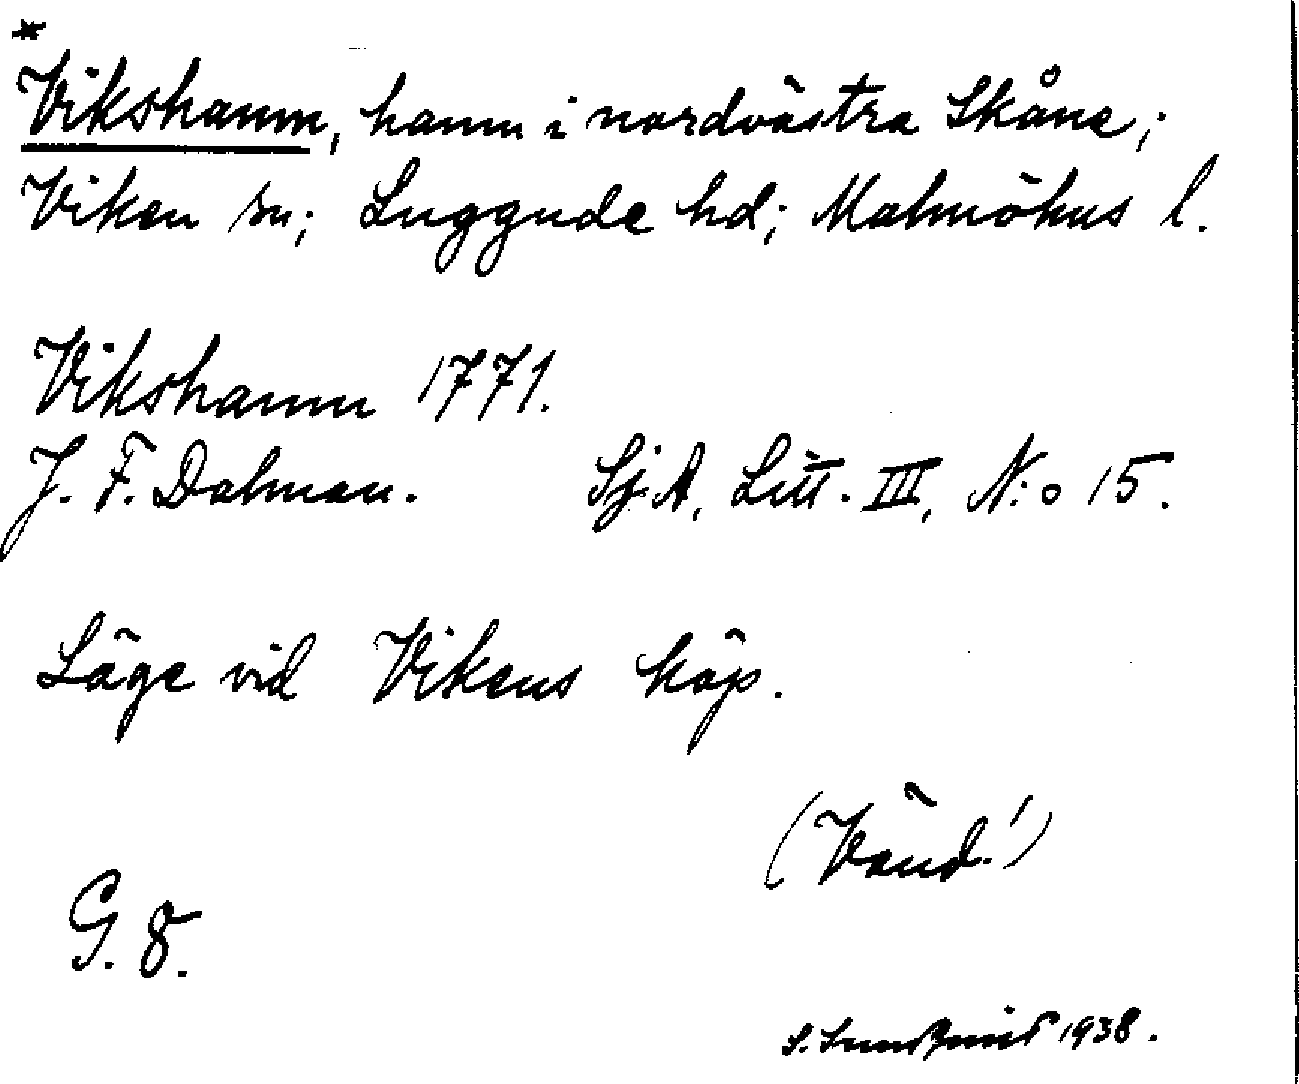 *
Vikshamn, hamn i nordvästra Skåne;
Viken sn; Luggude hd; Malmöhus l.
Vikshamn 1771.
J. F. Dalman. Sj.A, Litt. III, N:o 15.
Läge vid Vikens köp.
(Vänd!)
G. 8.
S. Sundquist 1938.